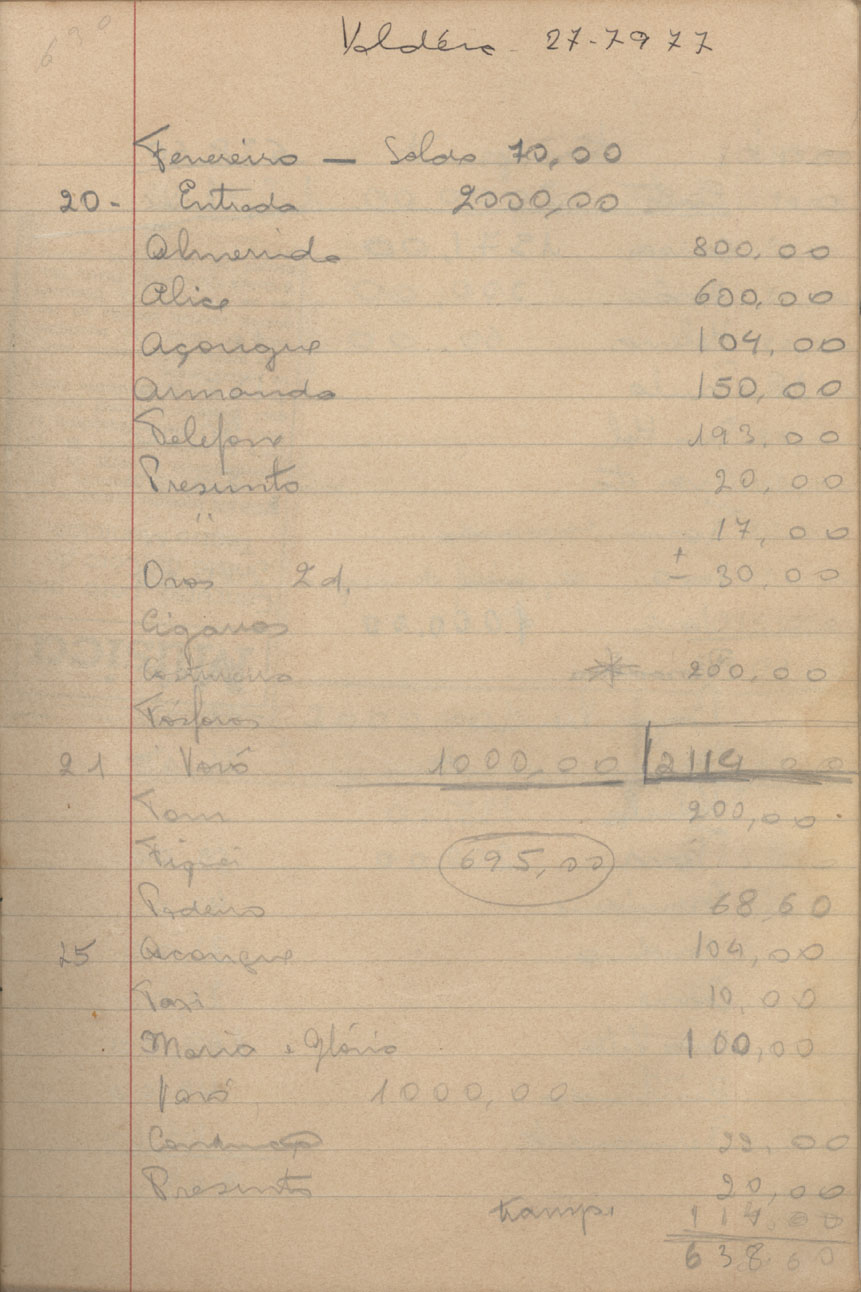 630
Valdéra - 27-7977
Fevereiro — Saldo 70,00
20- Entrada 2000,00
Almerinda 800,00
Alice 600,00
Açougue 104,00
Armando 150,00
Telefone 193,00
Presunto 20,00
" 17,00
Ovos 2 d. ± 30,00
Cigarros
Costureira 200,00
Fósforos
21 Vovô 1000,00 2114,00
Tom 200,00
Fiquei 695,00
Padeiro 68,60
25 Acougue 104,00
Taxi 10,00
Maria e Glória 100,00
Vovô 1000,00
Condução 22,00
Presunto 20,00
114,00
638,60